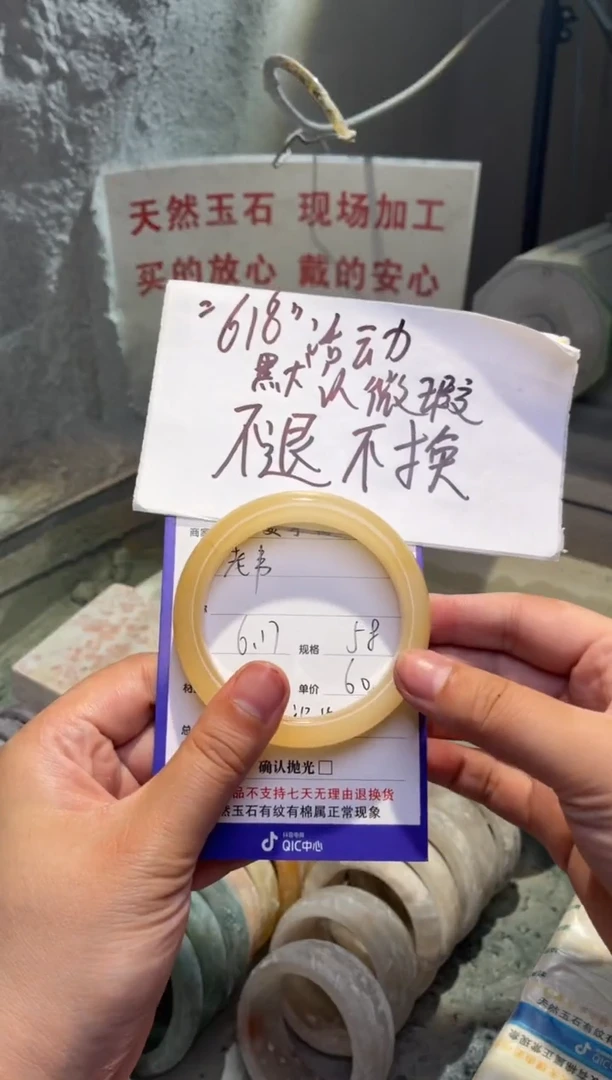 天然玉石 现场加工
买的放心 戴的安心
"618"活动
默认微瑕
不退不换
商家
老韦
6.17 规格 58
单价 60
确认抛光□
品不支持七天无理由退换货
然玉石有纹有棉属正常现象
抖音电商
QIC中心
天然玉石有纹